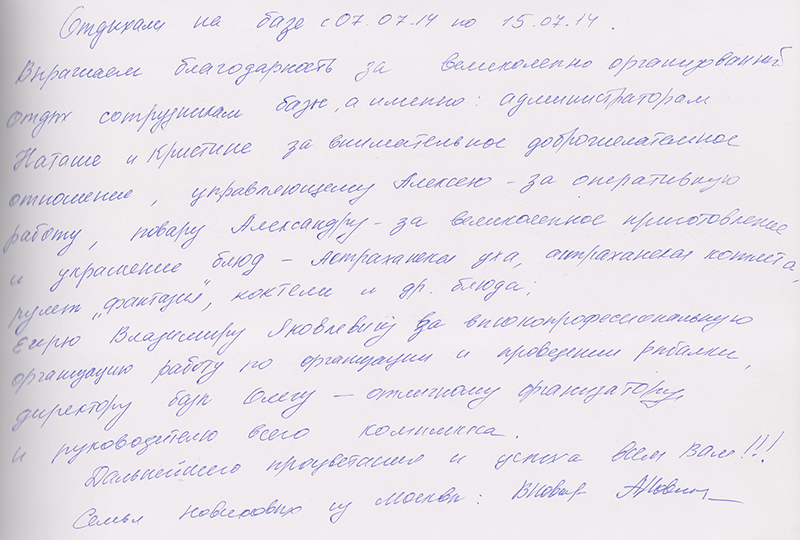 Отдыхали на базе с 07.07.14 по 15.07.14.
Выражаем благодарность за великолепно организованный
отдых сотрудникам базы, а именно: администраторам
Наташе и Кристине за внимательное доброжелательное
отношение, управляющему Алексею - за оперативную
работу, повару Александру - за великолепное приготовление
и украшение блюд - Астраханская уха, астраханская котлета,
рулет "фантазия", коктели и др. блюда;
Егерю Владимиру Яковлевичу за высокопрофессиональную
организацию работу по организации и проведении рыбалки,
директору базы Олегу - отличному организатору,
и руководителю всего комплекса.
Дальнейшего процветания и успеха всем Вам!!!
Семья из Москвы: